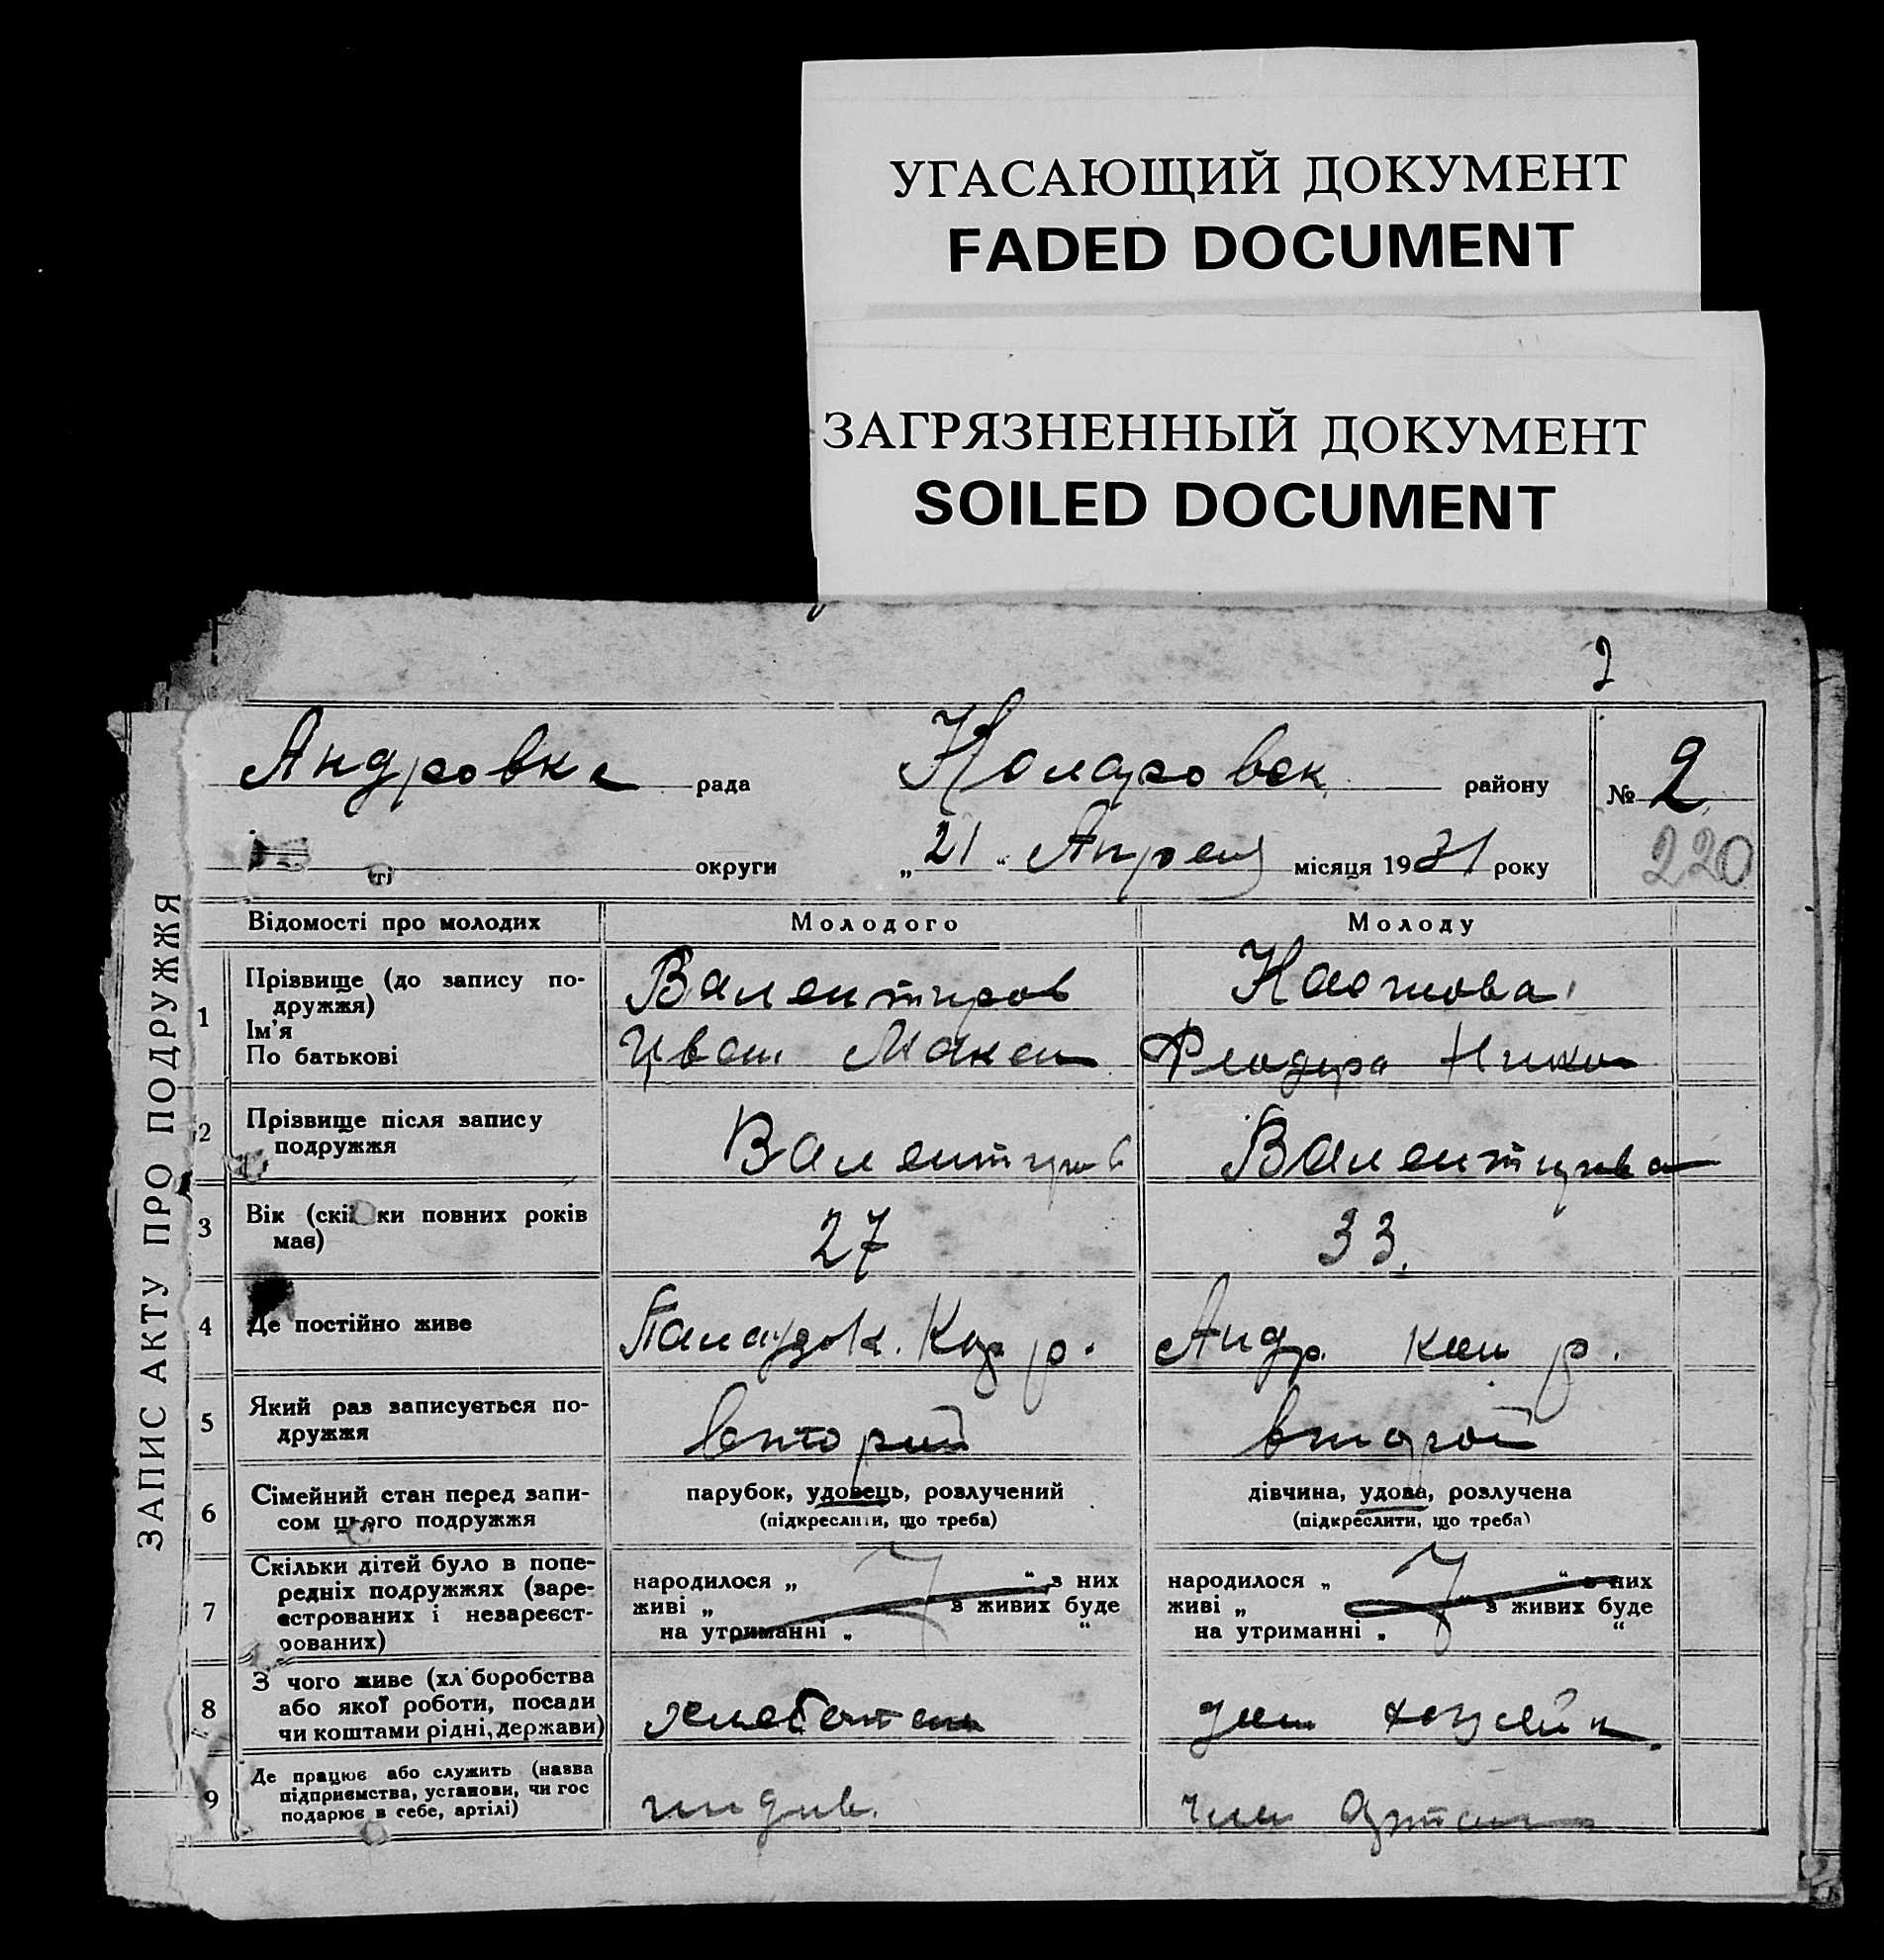 УГАСАЮЩИЙ ДОКУМЕНТ
FADED DOCUMENT
ЗАГРЯЗНЕННЫЙ ДОКУМЕНТ
SOILED DOCUMENT
2
Андровка рада Коларовск району № 2
округи „21“ Апреля місяця 1931 року 220
ЗАПИС АКТУ ПРО ПОДРУЖЖЯ
Відомості про молодих Молодого Молоду
1 Прізвище (до запису по-
дружжя)
Ім'я
По батькові
Валентиров
Макси
Николо
2 Прізвище після запису
подружжя
Валентиров
Валентирова
3 Вік (скі ки повних років
має)
27
33.
4 Де постійно живе
р.
Андр. р.
5 Який раз записується по-
дружжя
вторий
второй
6 Сімейний стан перед запи-
сом цього подружжя
парубок, удовець, розлучений
(підкреслити, що треба)
дівчина, удова, розлучена
(підкреслити, що треба)
7 Скільки дітей було в попе-
редніх подружжях (заре-
єстрованих і незареєст-
рованих)
народилося „ “ з них
живі „ “ з живих буде
на утриманні „ “
народилося „ “ з них
живі „ “ з живих буде
на утриманні „ “
8 З чого живе (хл боробства
або якої роботи, посади
чи коштами рідні, держави)
дом хозяйк.
9 Де працює або служить (назва
підприємства, установи, чи гос
подарює в себе, артілі)
индив.
член артели